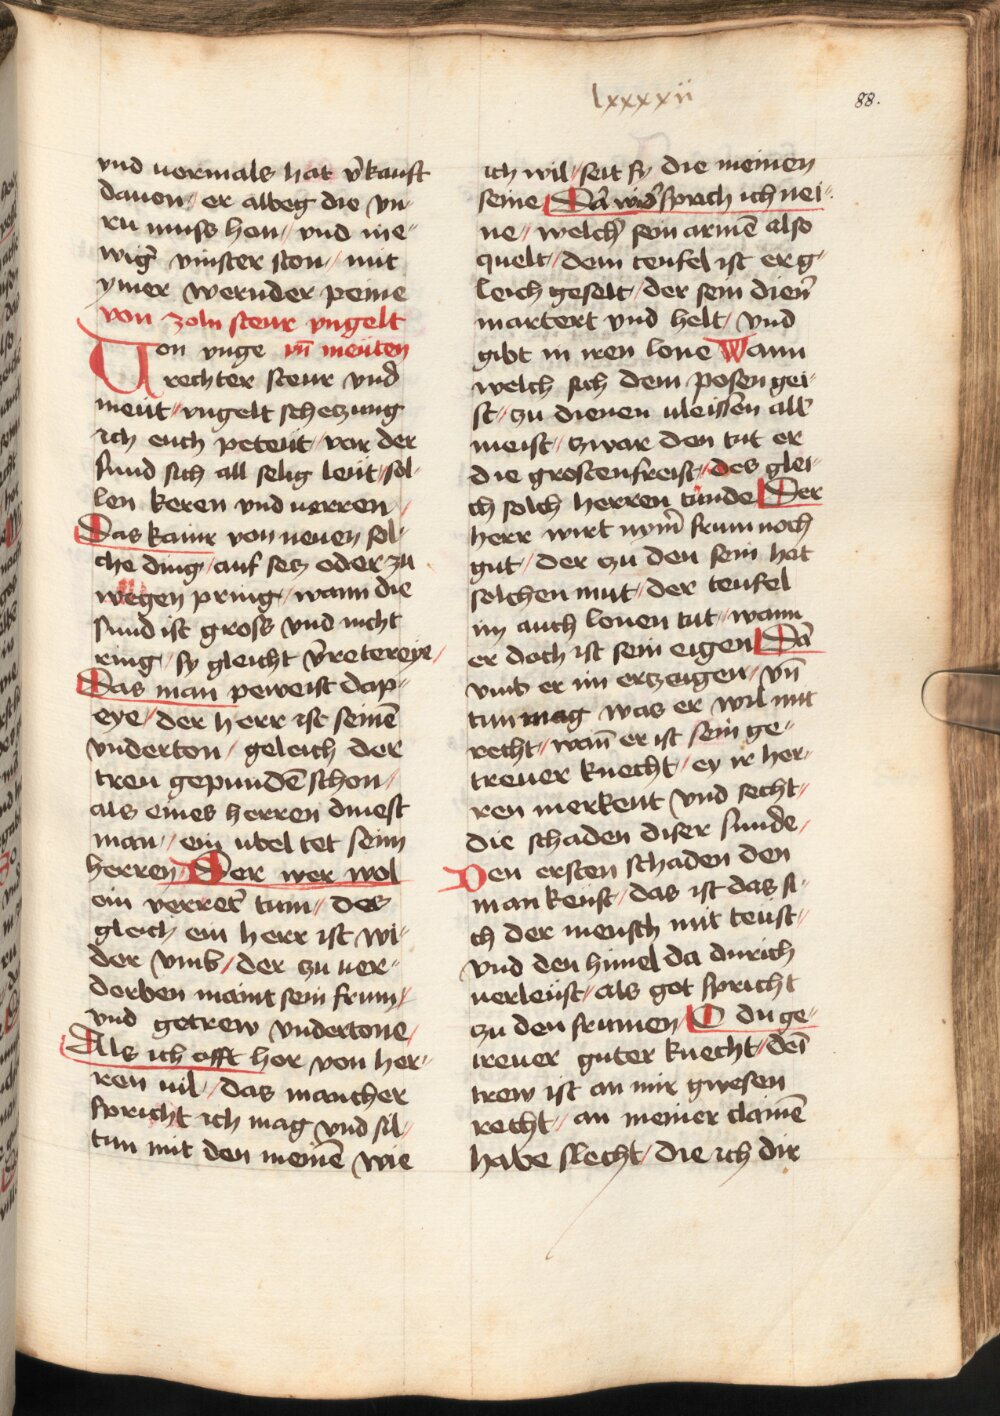 lxxxxii
88.
vnd uormals hat v̄kauft
dauon / er albeg die vn
ru muss hon / vnd ine=
wig̾ vinster ston / mit
ymer wernder peine
von zoln steur vngelt
Von vnge vn̄ meüten
rechter steur vnd
meüt / vngelt schetzung
ich euch peteüt / vor der
sund sich all selig leüt / sol-
len keren vnd uerren /
Das kainr von neuen sol-
che ding / auf setz oder zu
wegen pring / wann die
sund ist gross vnd nicht
ring / sy gleicht v̄retereye /
Das man peweist dap=
eye / der herr ist seinē
vnderton / geleich der
treu gepundē schon /
als eines herren dinest
man / ein ubel tet seim
herren / Der wer wol
ein verret̾ tum / des
gleich ein herr ist wi-
der vmb / der zu uer=
derben maint sein frum /
vnd getrew vndertone /
Als ich offt hor von her=
ren uil / das mancher
spricht ich mag vnd sil /
tun mit den meinē wie
ich wil / seit sy die meinen
seine Da wid̾ sprach ich nei-
ne / welch̾ sein armē also
quelt / dem teufel ist er g=
leich geselt / der sein dien̾
martert vnd helt / vnd
gibt in iren lone Wann
welch sich dem posen gei=
st / zu dienen uleissen all̾
meist / zwar den tut er
die grosten freist / des glei-
ch solch herren tunde Der
herr wirt nym̄ frum noch
gut / der zu den sein hat
solchen mut / der teufel
im auch lonen tut / wann
er doch ist sein eigen Da
vmb er im ertzeugen / vn̄
tun mag was er wil mit
recht / wan̄ er ist sein ge=
treuer knecht / ey ir her-
ren merkent vnd secht /
die schaden diser sunde /
Den ersten schaden den
man kenst / das ist das si-
ch der mensch mit teust /
vnd den himel da durich
uerleüst / als got spricht
zu den frumen / O du ge=
treuer guter knecht / dei
trew ist an mir gwesen
recht / an meiner clainē
habe slecht / die ich dir